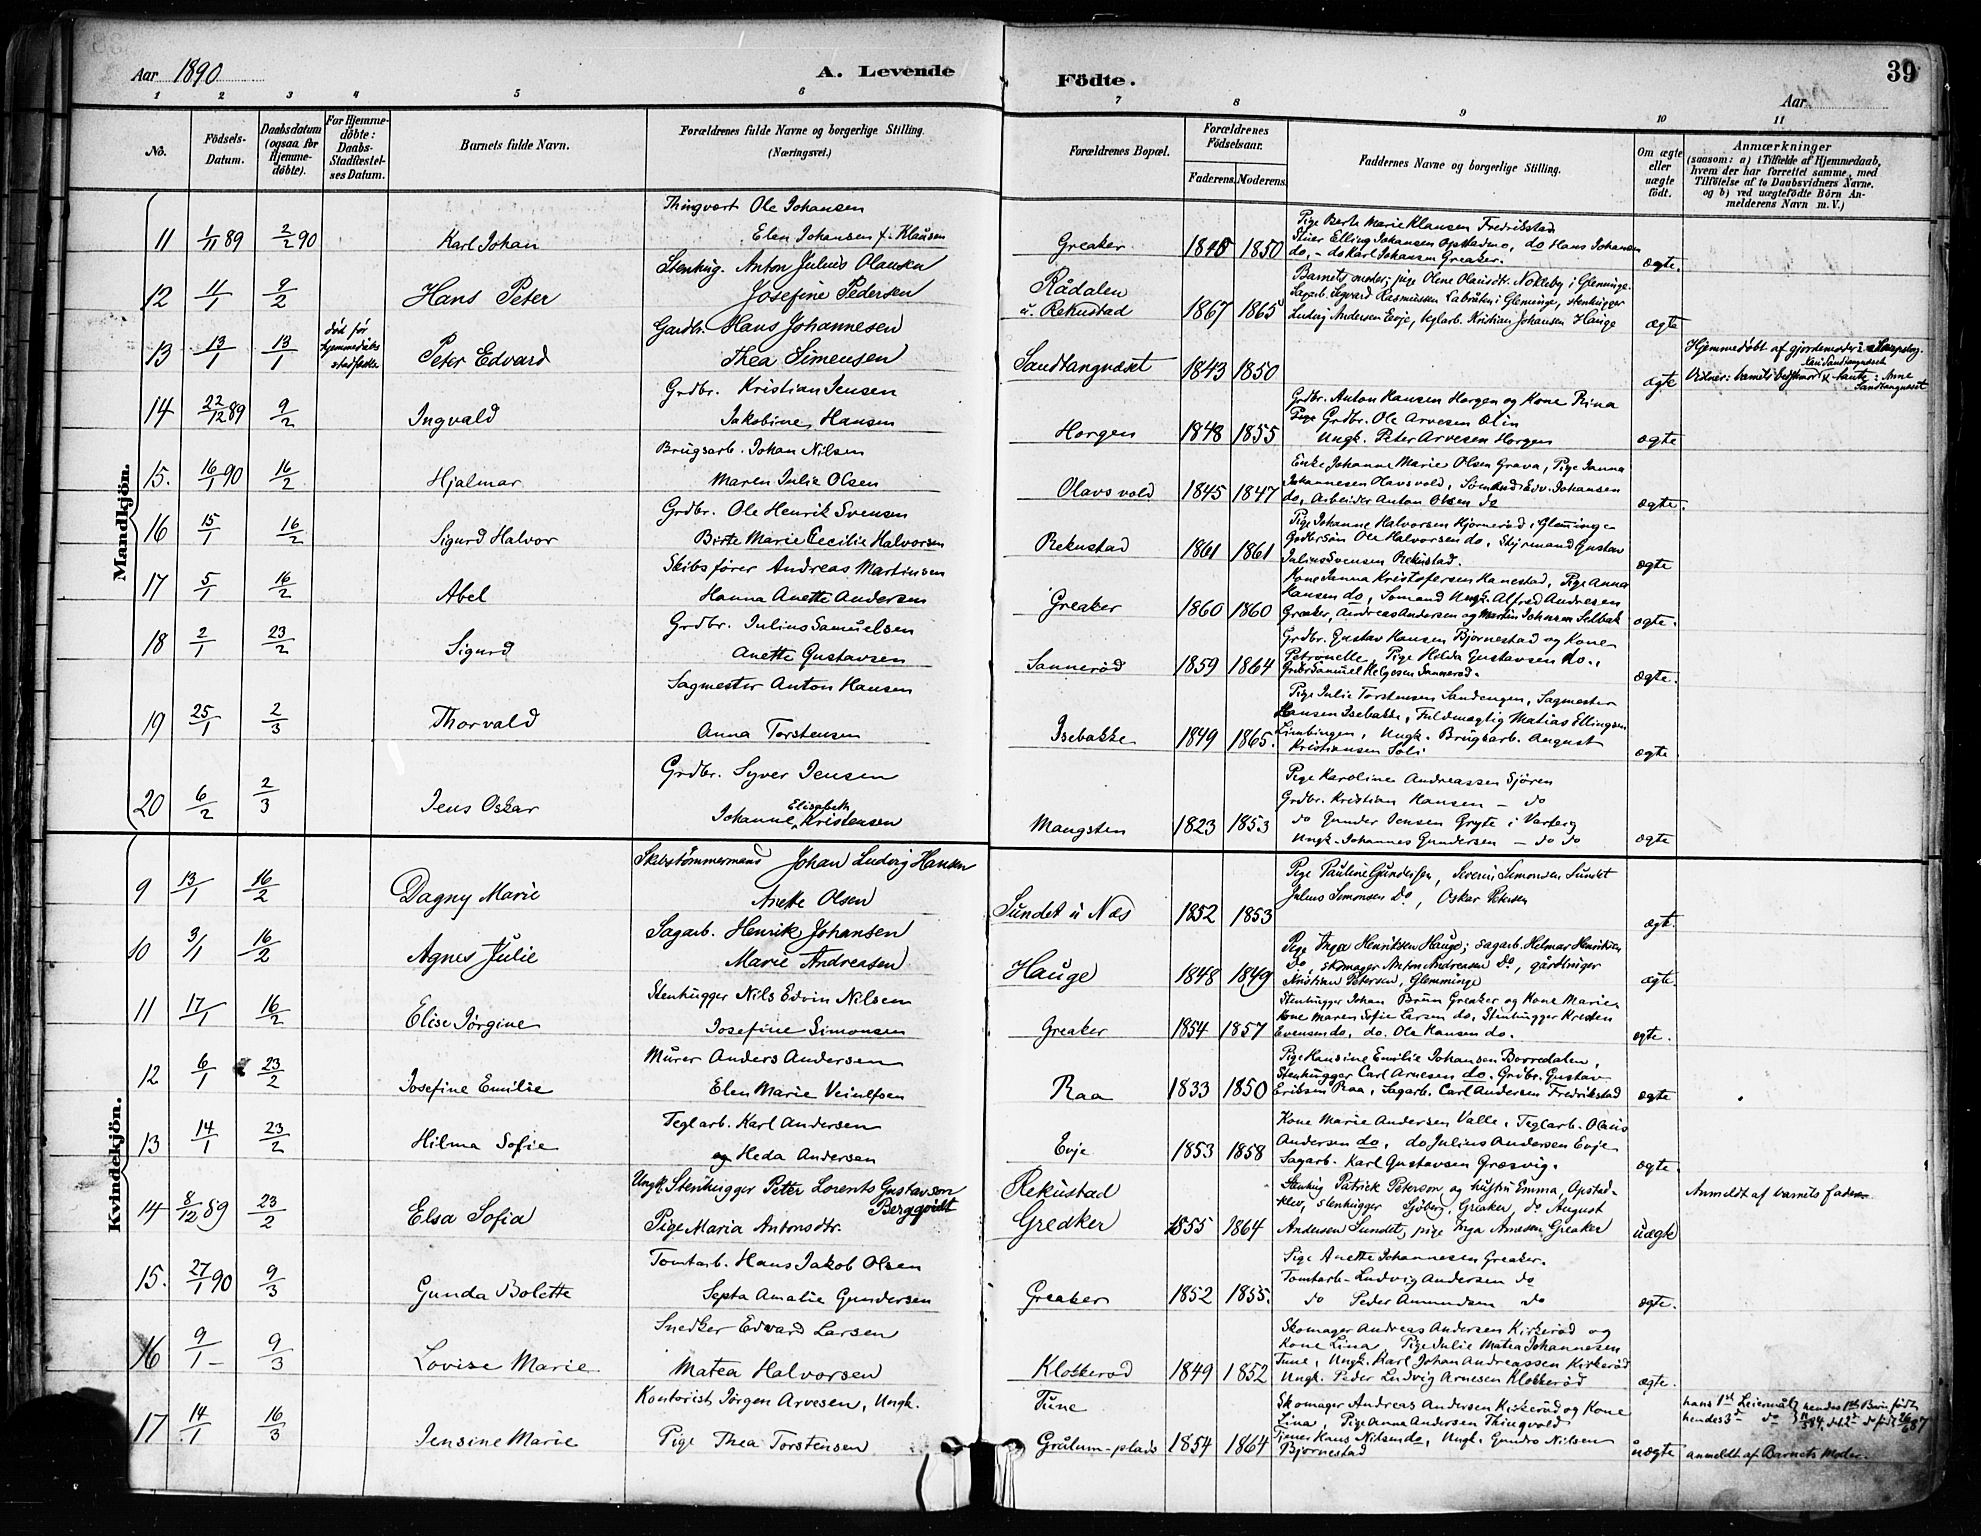 Aar 1890
A. Levende
Födte.
39
Aar
1 2 3 4 5 6 7 8 9 10 11
No.
Födsels-
Datum.
Daabsdatum
(ogsaa for
Hjemme-
døbte).
For Hjemme-
døbte:
Daabs-
Stadfæstel-
ses Datum.
Barnets fulde Navn.
Forældrenes fulde Navne og borgerlige Stilling.
(Næringsvei.)
Forældrenes Bopæl.
Forældrenes
Födselsaar.
Faderens. Moderens.
Faddernes Navne og borgerlige Stilling.
Om ægte
eller
uægte
födt.
Anmærkninger
(saasom: a) i Tilfælde af Hjemmedaab,
hvem der har forrettet samme, med
Tilföielse af to Daabsvidners Navne,
og b) ved uægtefödte Börn An-
melderens Navn m. V.)
Mandkjön.
11 1/11 89 2/2 90 Karl Johan
Ole Johansen
Elen Johansen f. Klausen
Greaker 1848 1850
Pige Berte Marie Klausen Fredrikstad
Elling Johansen do Hans Johansen
do, - do Karl Johansen Greaker.
ægte.
12 11/1 9/2 Hans Peter
Stenhug. Anton Julius Olausen
Josefine Pedersen
Rådalen
u. Rekustad 1867 1865
Barnets moder, pige Olene Olausdr. Nokleby i Glemminge
Sagarb. Sigvard Rasmussen Labråten i Glemminge, stenhugger
Ludvig Andersen Evje, teglarb. Kristian Johansen Hauge
ægte
13 13/1 13/1 død før
hjemmedåbs
stadfæstelse
Peter Edvard
Gardbr. Hans Johannesen
Thea Simensen
Sandtangnæset 1843 1850
ægte
Hjemmedøbt af gjordemoder
14 22/12 89 9/2 Ingvald
Grdbr. Kristian Jensen
Jakobine Hansen
Horgen 1848 1855
Grdbr. Anton Hansen Horgen og Kone Rina
Grdbr. Ole Arvesen Olin
Ungk. Peter Arvesen Horgen
ægte
15. 16/1 90 16/2 Hjalmar
Brugsarb. Johan Nilsen
Maren Julie Olsen
Olavsvold 1845 1847
Enke Johanne Marie Olsen Grava, Pige Janna
Johannesen Olavsvold, Sømand Edv. Johansen
do, Arbeider Anton Olsen do
ægte.
16 15/1 16/2 Sigurd Halvor
Grdbr. Ole Henrik Svensen
Birte Marie Cecilie Halvorsen
Rekustad 1861 1861
Pige Johanne Halvorsen Kjornerød i Glemminge
Grdbrsøn Ole Halvorsen do, Styrmand Gustav
Julius Svensen Rekustad.
ægte
17 5/1 16/2 Abel
Skibsfører Andreas Martinsen
Hanna Anette Andersen
Greaker 1860 1860
Kone Janna Kristofersen Hanestad, Pige Anna
Hansen do, Sømand Ungk. Alfred Andresen
Greaker, Andreas Andersen og Martin Johansen Selbak
ægte.
18 2/1 23/2 Sigurd
Grdbr. Julius Samuelsen
Anette Gustavsen
Sannerød 1859 1864
Grdbr. Gustav Hansen Bjornestad og Kone
Petronelle, Pige Hilda Gustavsen do.,
Grdbr Samuel Helgesen Sannerød.
ægte.
19 25/1 2/3 Thorvald
Sagmester Anton Hansen
Anna Torstensen
Isebakke 1849 1865.
Pige Julie Torstensen Sandengen, Sagmester
Hansen Isebakke, Fuldmægtig Matias Ellingsen
Ungk. Brugsarb. August
Kristiansen Soli
ægte
20 6/2 2/3 Jens Oskar
Grdbr. Syver Jensen
Elisabeth
Johanne Kristensen
Mangsten 1823 1853
Pige Karoline Andreassen Sjøren
Grdbr. Kristian Hansen - do
do Gunder Jensen Gryte i Varteig
Ungk. Johannes Gundersen - do do
ægte
Kvindekjön.
9 13/1 16/2 Dagny Marie
Skibstømmermand Johan Ludvig Hansen
Anette Olsen
Sundet u Næs 1852 1853
Pige Pauline Gundersen, Severin Simonsen Sundet
Julius Simonsen Do, Oskar Petersen
ægt.
10 3/1 16/2 Agnes Julie
Sagarb. Henrik Johansen
Marie Andreasen
Hauge 1848 1849
Pige Inga Henriksen Hauge; sagarb. Helmar Henriksen
Do, skomager Anton Andreasen Do,
Kristian Petersen, Glemminge
ægte.
11 17/1 16/2 Elise Jørgine
Stenhugger Nils Edvin Nilsen
Josefine Simonsen
Greaker 1854 1857
Stenhugger Johan Brun Greaker og Kone Marie,
Kone Maren Sofie Larsen do, Stenhugger Kresten
Evensen do, do. Ole Hansen do.
ægte.
12 6/1 23/2 Josefine Emilie
Murer Anders Andersen
Elen Marie Veiulfsen
Raa 1833 1850
Pige Hansine Emilie Johansen Borredalen,
Stenhugger Carl Arnesen do. Grdbr. Gustav
Eriksen Raa, Sagarb. Carl Andersen Fredrikstad
ægte
13 14/1 23/2 Hilma Sofie
Teglarb. Karl Andersen
og Heda Andersen
Evje 1853 1858
Kone Marie Andersen Valle, Teglarb. Olaus
Andersen do, do Julius Andersen Evje
Sagarb. Karl Gustavsen Græsvig.
ægte.
14 8/12 89 23/2 Elsa Sofia
Ungk. Stenhugger Peter Lorents Gustavson
Bergqvidt
Pige Maria Antonsdtr.
Rekustad
Greaker 1855 1864
Stenhug Patrick Peterson og hustru Emma, Opstad-
klev, stenhugger Sjöberg, Greaker, do August
Andersen Sundet, pige Inga Arnesen Greaker
uægte
Anmeldt af barnets fader
15. 27/1 90 9/3 Gunda Bolette
Tomtarb. Hans Jakob Olsen
Septa Amalie Gundersen
Greaker 1852 1855.
Pige Anette Johannesen Greaker.
Tomtarb- Ludvig Andersen do
do Peder Amundsen do
ægte.
16 9/1 - 9/3 Lovise Marie
Snedker Edvard Larsen
Matea Halvorsen
Klokkerød 1849 1852
Skomager Andreas Andersen Kirkerød og
Kone Lina, Pige Julie Matea Johannesen
Tune, Ungk. Karl Johan Andreassen Kirkerød
Ungk. Peder Ludvig Arnesen Klokkerød
ægte.
17 14/1 16/3 Jensine Marie
Kontorist Jörgen Arvesen, Ungk.
Pige Thea Torstensen
Tune
Grålum-plads 1854 1864
Skomager Andreas Andersen Kirkerød og Kone
Lina, Pige Anne Andersen Thingvold
Tjener Hans Nilsen do, Ungk. Gundro Nilsen
Bjornestad
uægte
hans 1ste Leiermål, hendes 1ste Barn født
anmeldt af Barnets Moder.